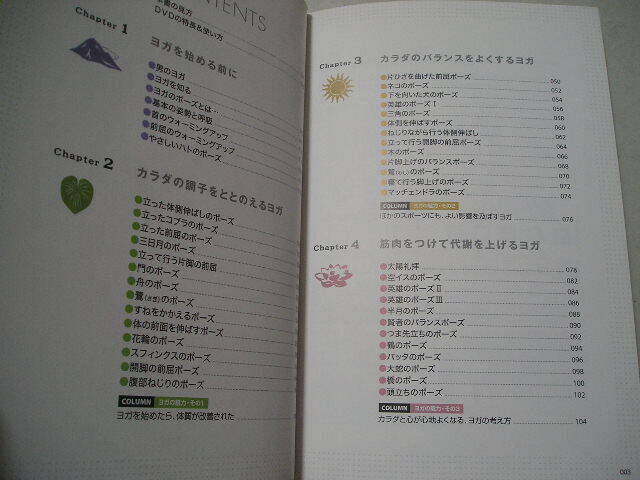 NTENTS
本書の見方
DVDの特長&使い方
Chapter 1
ヨガを始める前に
●男のヨガ
●ヨガを知る
●ヨガのポーズとは…
●基本の姿勢と呼吸
●首のウォーミングアップ
●前屈のウォーミングアップ
●やさしいハトのポーズ
Chapter 2
カラダの調子をととのえるヨガ
●立った体側伸ばしのポーズ
●立ったコブラのポーズ
●立った前屈のポーズ
●三日月のポーズ
●立って行う片胸の前屈
●門のポーズ
●舟のポーズ
●鷺(さぎ)のポーズ
●すねをかかえるポーズ
●体の前面を伸ばすポーズ
●花輪のポーズ
●スフィンクスのポーズ
●開脚の前屈ポーズ
●腹部ねじりのポーズ
COLUMN ヨガの魅力・その1
ヨガを始めたら、体質が改善された
Chapter 3 カラダのバランスをよくするヨガ
●片ひざを曲げた前屈ポーズ 050
●ネコのポーズ 052
●下を向いた犬のポーズ 054
●英雄のポーズⅠ 056
●三角のポーズ 058
●体側を伸ばすポーズ 060
●ねじりながら行う体側伸ばし 062
●立って行う開脚の前屈ポーズ 064
●木のポーズ 066
●片脚上げのバランスポーズ 068
●鷲(わし)のポーズ 070
●寝て行う脚上げのポーズ 072
●マッチェンドラのポーズ 074
COLUMN ヨガの魅力・その2
ほかのスポーツにも、よい影響を及ぼすヨガ 076
Chapter 4 筋肉をつけて代謝を上げるヨガ
●太陽礼拝 078
●空イスのポーズ 082
●英雄のポーズⅡ 084
●英雄のポーズⅢ 086
●半月のポーズ 088
●賢者のバランスポーズ 090
●つま先立ちのポーズ 092
●鶴のポーズ 094
●バッタのポーズ 096
●大蛇のポーズ 098
●橋のポーズ 100
●頭立ちのポーズ 102
COLUMN ヨガの魅力・その3
カラダと心が心地よくなる、ヨガの考え方 104
003